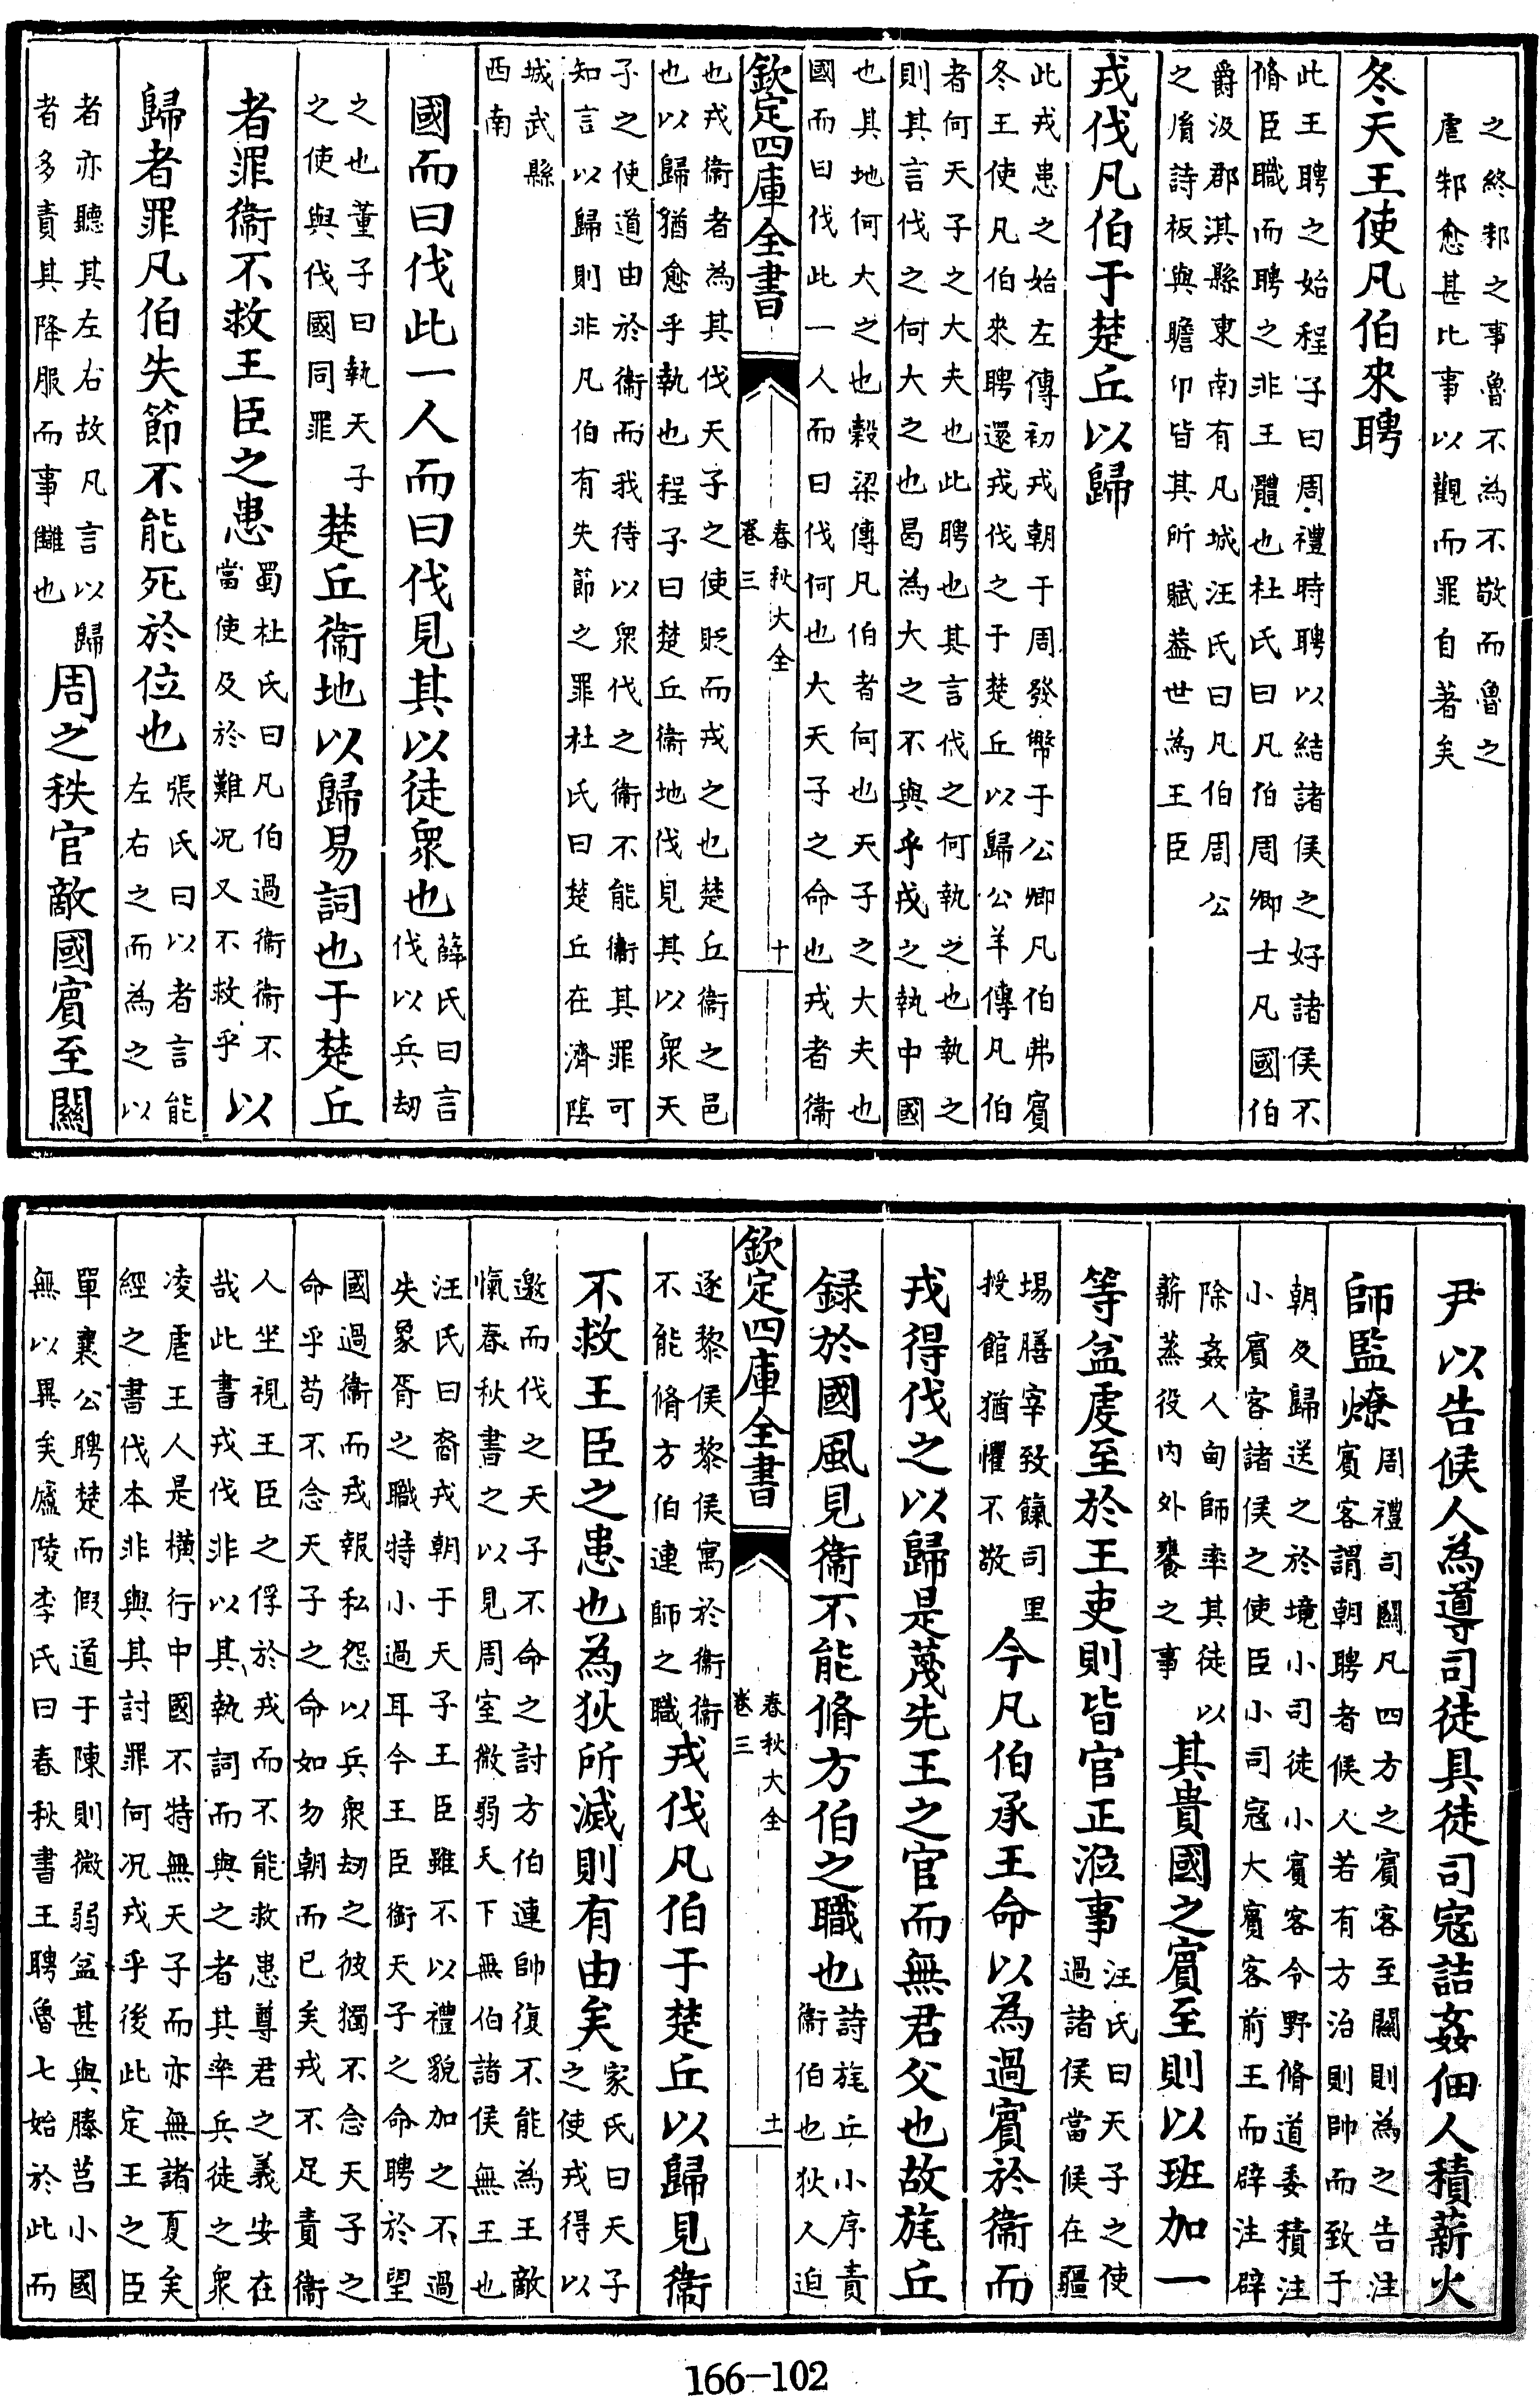 之終邾之事魯不為不敬而魯之
虐邾愈甚比事以觀而罪自著矣
冬天王使凡伯來聘
此王聘之始程子曰周禮時聘以結諸侯之好諸侯不
脩臣職而聘之非王體也杜氏曰凡伯周卿士凡國伯
爵汲郡淇縣東南有凡城汪氏曰凡伯周公
之𦙍詩板與瞻卬皆其所賦葢世為王臣
戎伐凡伯于楚丘以歸
此戎患之始左傳初戎朝于周發幣于公卿凡伯弗賓
冬王使凡伯來聘還戎伐之于楚丘以歸公羊傳凡伯
者何天子之大夫也此聘也其言伐之何執之也執之
則其言伐之何大之也曷為大之不與乎戎之執中國
也其地何大之也穀梁傳凡伯者何也天子之大夫也
國而曰伐此一人而曰伐何也大天子之命也戎者衞
欽定四庫全書
春秋大全
卷三
十
也戎衞者為其伐天子之使貶而戎之也楚丘衞之邑
也以歸猶愈乎執也程子曰楚丘衞地伐見其以衆天
子之使道由於衞而我待以衆伐之衞不能衞其罪可
知言以歸則非凡伯有失節之罪杜氏曰楚丘在濟隂
城武縣
西南
國而曰伐此一人而曰伐見其以徒衆也
薛氏曰言
伐以兵刼
之也董子曰執天子
之使與伐國同罪
楚丘衞地以歸易詞也于楚丘
者罪衞不救王臣之患
蜀杜氏曰凡伯過衞衞不
當使及於難况又不救乎
以
歸者罪凡伯失節不能死於位也
張氏曰以者言能
左右之而為之以
者亦聽其左右故凡言以歸
者多責其降服而事讎也
周之秩官敵國賓至關
尹以告候人為導司徒具徒司寇詰姦佃人積薪火
師監燎
周禮司關凡四方之賓客至關則為之告注
賓客謂朝聘者候人若有方治則帥而致于
朝及歸送之於境小司徒小賓客令野脩道委積注
小賓客諸侯之使臣小司寇大賓客前王而辟注辟
除姦人甸師率其徒以
薪蒸役內外饔之事
其貴國之賓至則以班加一
等益虔至於王吏則皆官正涖事
汪氏曰天子之使
過諸侯當候在疆
埸膳宰致餼司里
授館猶懼不敬
今凡伯承王命以為過賓於衞而
戎得伐之以歸是蔑先王之官而無君父也故旄丘
録於國風見衞不能脩方伯之職也
詩旄丘小序責
衞伯也狄人迫
逐黎侯黎侯寓於衞衞
不能脩方伯連師之職
戎伐凡伯于楚丘以歸見衞
欽定四庫全書
春秋大全
卷三
十一
不救王臣之患也為狄所滅則有由矣
家氏曰天子
之使戎得以
邀而伐之天子不命之討方伯連帥復不能為王敵
愾春秋書之以見周室微弱天下無伯諸侯無王也
汪氏曰裔戎朝于天子王臣雖不以禮貌加之不過
失象胥之職特小過耳今王臣銜天子之命聘於望
國過衞而戎報私怨以兵衆刼之彼獨不念天子之
命乎苟不念天子之命如勿朝而已矣戎不足責衞
人坐視王臣之俘於戎而不能救患尊君之義安在
哉此書戎伐非以其執詞而與之者其率兵徒之衆
凌虐王人是橫行中國不特無天子而亦無諸夏矣
經之書伐本非與其討罪何况戎乎後此定王之臣
單襄公聘楚而假道于陳則微弱益甚與滕莒小國
無以異矣廬陵李氏曰春秋書王聘魯七始於此而
166-102